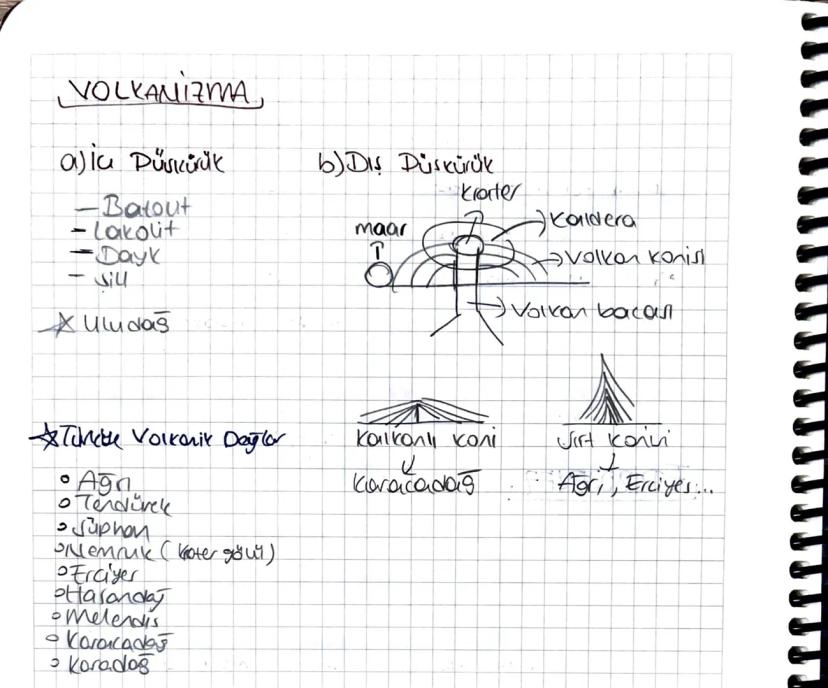 VOLKANİZMA
a) İç Püskürük
- Batolit
- Lakolit
- Dayk
- Sill
Uludağ
b) Dış Püskürük
krater
kaldera
maar
Volkan konisi
Volkan bacası
Kalkanlı koni
Karacadağ
Sırt konisi
Ağrı, Erciyes...
Türkiye Volkanik Dağlar
Ağrı
Tendürek
Süphan
Nemrut (krater gölü)
Erciyes
Hasandağ
Melendis
Karacadağ
Karadağ